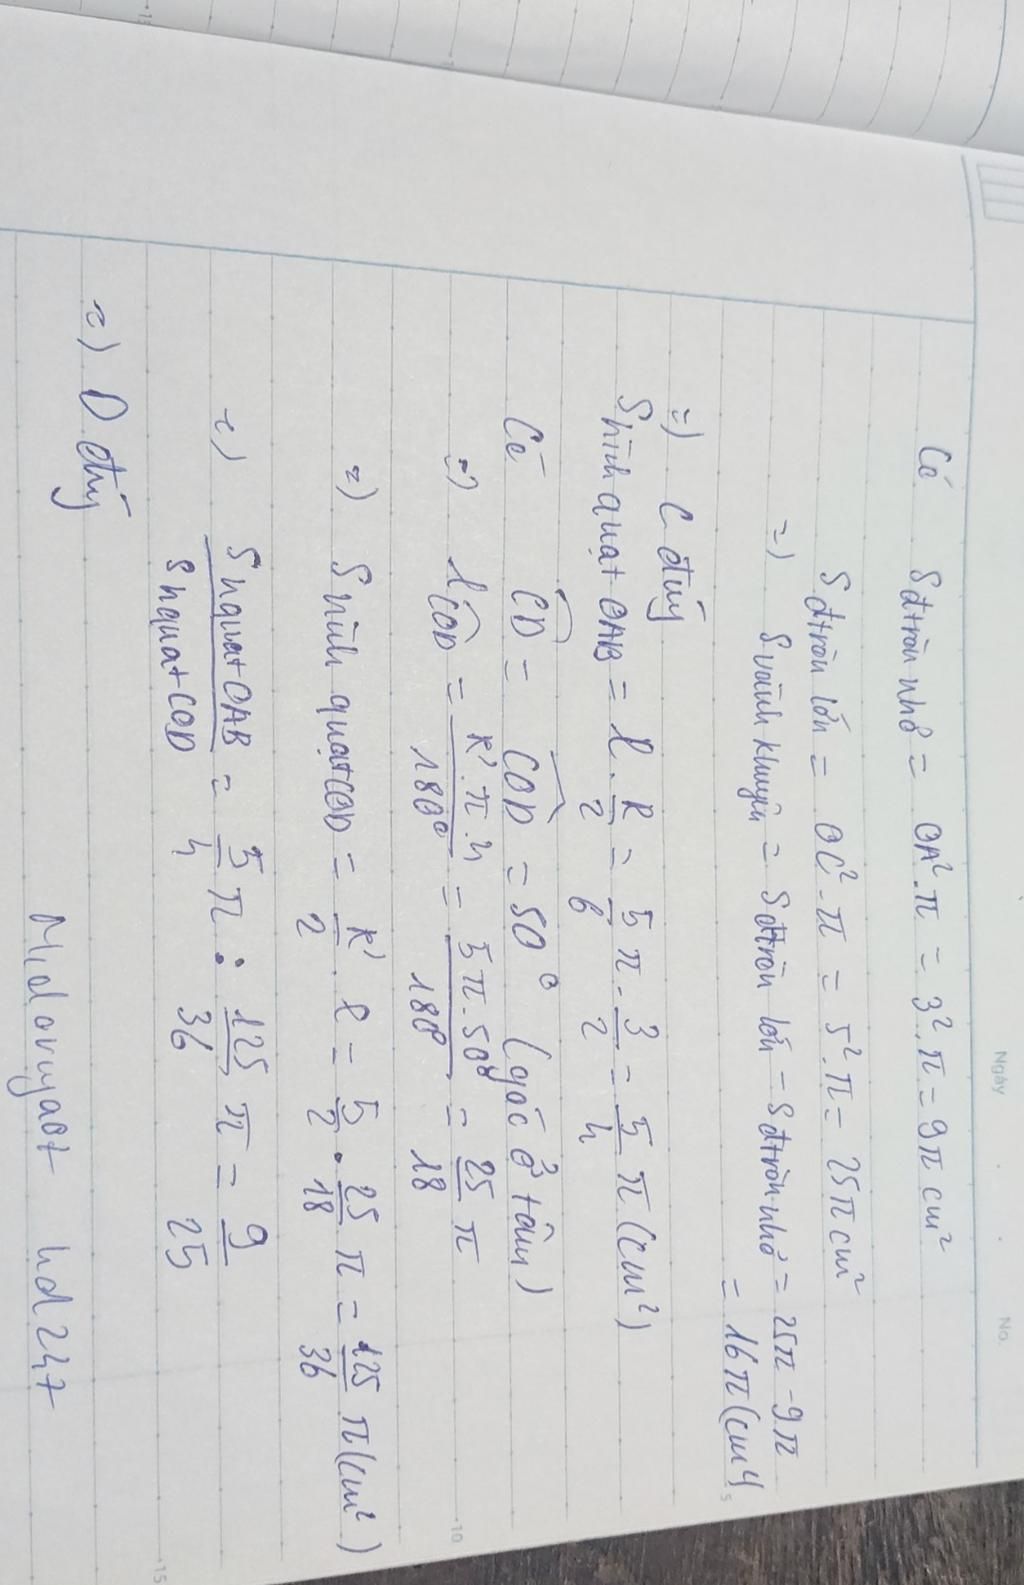 Ngày
No.
Có S đtròn nhỏ = OA². π = 3². π = 9π cm²
S đtròn lớn = OC² . π = 5². π = 25π cm²
=) S vành khuyên = S đtròn lớn - S đtròn nhỏ = 25π - 9π
= 16π (cm²)
5
=) C đúng
S hình quạt OAB = l . R/2 = 5/6 π . 3/2 = 5/4 π (cm²)
Có CD = COD = 50° (góc ở tâm)
=) l COD = R'. π. n/180° = 5π. 50°/180° = 25/18 π
10
=) S hình quạt COD = R'/2 . l = 5/2 . 25/18 π = 125/36 π (cm²)
=) S hquạt OAB/S hquạt COD = 5/4 π : 125/36 π = 9/25
15
=) D đúng
Midoruyaot hd247